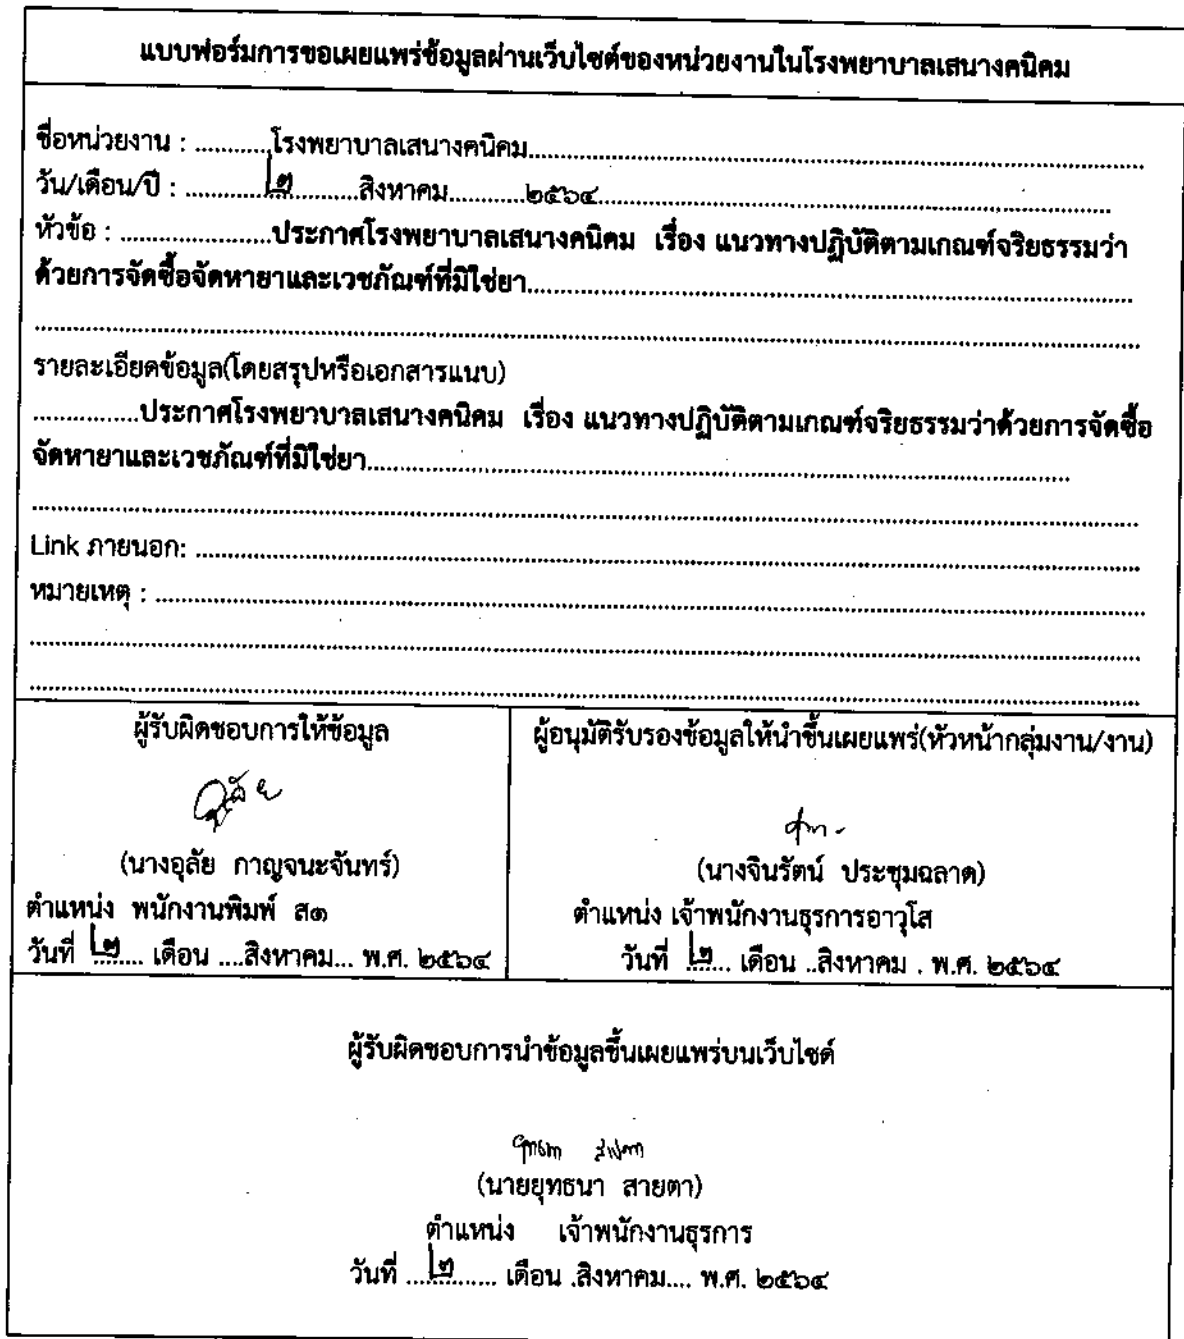 แบบฟอร์มการขอเผยแพร่ข้อมูลผ่านเว็บไซต์ของหน่วยงานในโรงพยาบาลเสนางคนิคม
ชื่อหน่วยงาน : ............โรงพยาบาลเสนางคนิคม............
วัน/เดือน/ปี : ............๒............สิงหาคม............๒๕๖๔............
หัวข้อ : ......................ประกาศโรงพยาบาลเสนางคนิคม เรื่อง แนวทางปฏิบัติตามเกณฑ์จริยธรรมว่า
ด้วยการจัดซื้อจัดหายาและเวชภัณฑ์ที่มิใช่ยา............
รายละเอียดข้อมูล(โดยสรุปหรือเอกสารแนบ)
...............ประกาศโรงพยาบาลเสนางคนิคม เรื่อง แนวทางปฏิบัติตามเกณฑ์จริยธรรมว่าด้วยการจัดซื้อ
จัดหายาและเวชภัณฑ์ที่มิใช่ยา............
Link ภายนอก: ............
หมายเหตุ : ............
ผู้รับผิดชอบการให้ข้อมูล
อุลัย
(นางอุลัย กาญจนะจันทร์)
ตำแหน่ง พนักงานพิมพ์ ส๑
วันที่ ๒.... เดือน ....สิงหาคม... พ.ศ. ๒๕๖๔
ผู้อนุมัติรับรองข้อมูลให้นำขึ้นเผยแพร่(หัวหน้ากลุ่มงาน/งาน)
(นางจินรัตน์ ประชุมฉลาด)
ตำแหน่ง เจ้าพนักงานธุรการอาวุโส
วันที่ ๒... เดือน ..สิงหาคม . พ.ศ. ๒๕๖๔
ผู้รับผิดชอบการนำข้อมูลขึ้นเผยแพร่บนเว็บไซต์
ยุทธนา สายตา
(นายยุทธนา สายตา)
ตำแหน่ง เจ้าพนักงานธุรการ
วันที่ ...๒....... เดือน .สิงหาคม.... พ.ศ. ๒๕๖๔